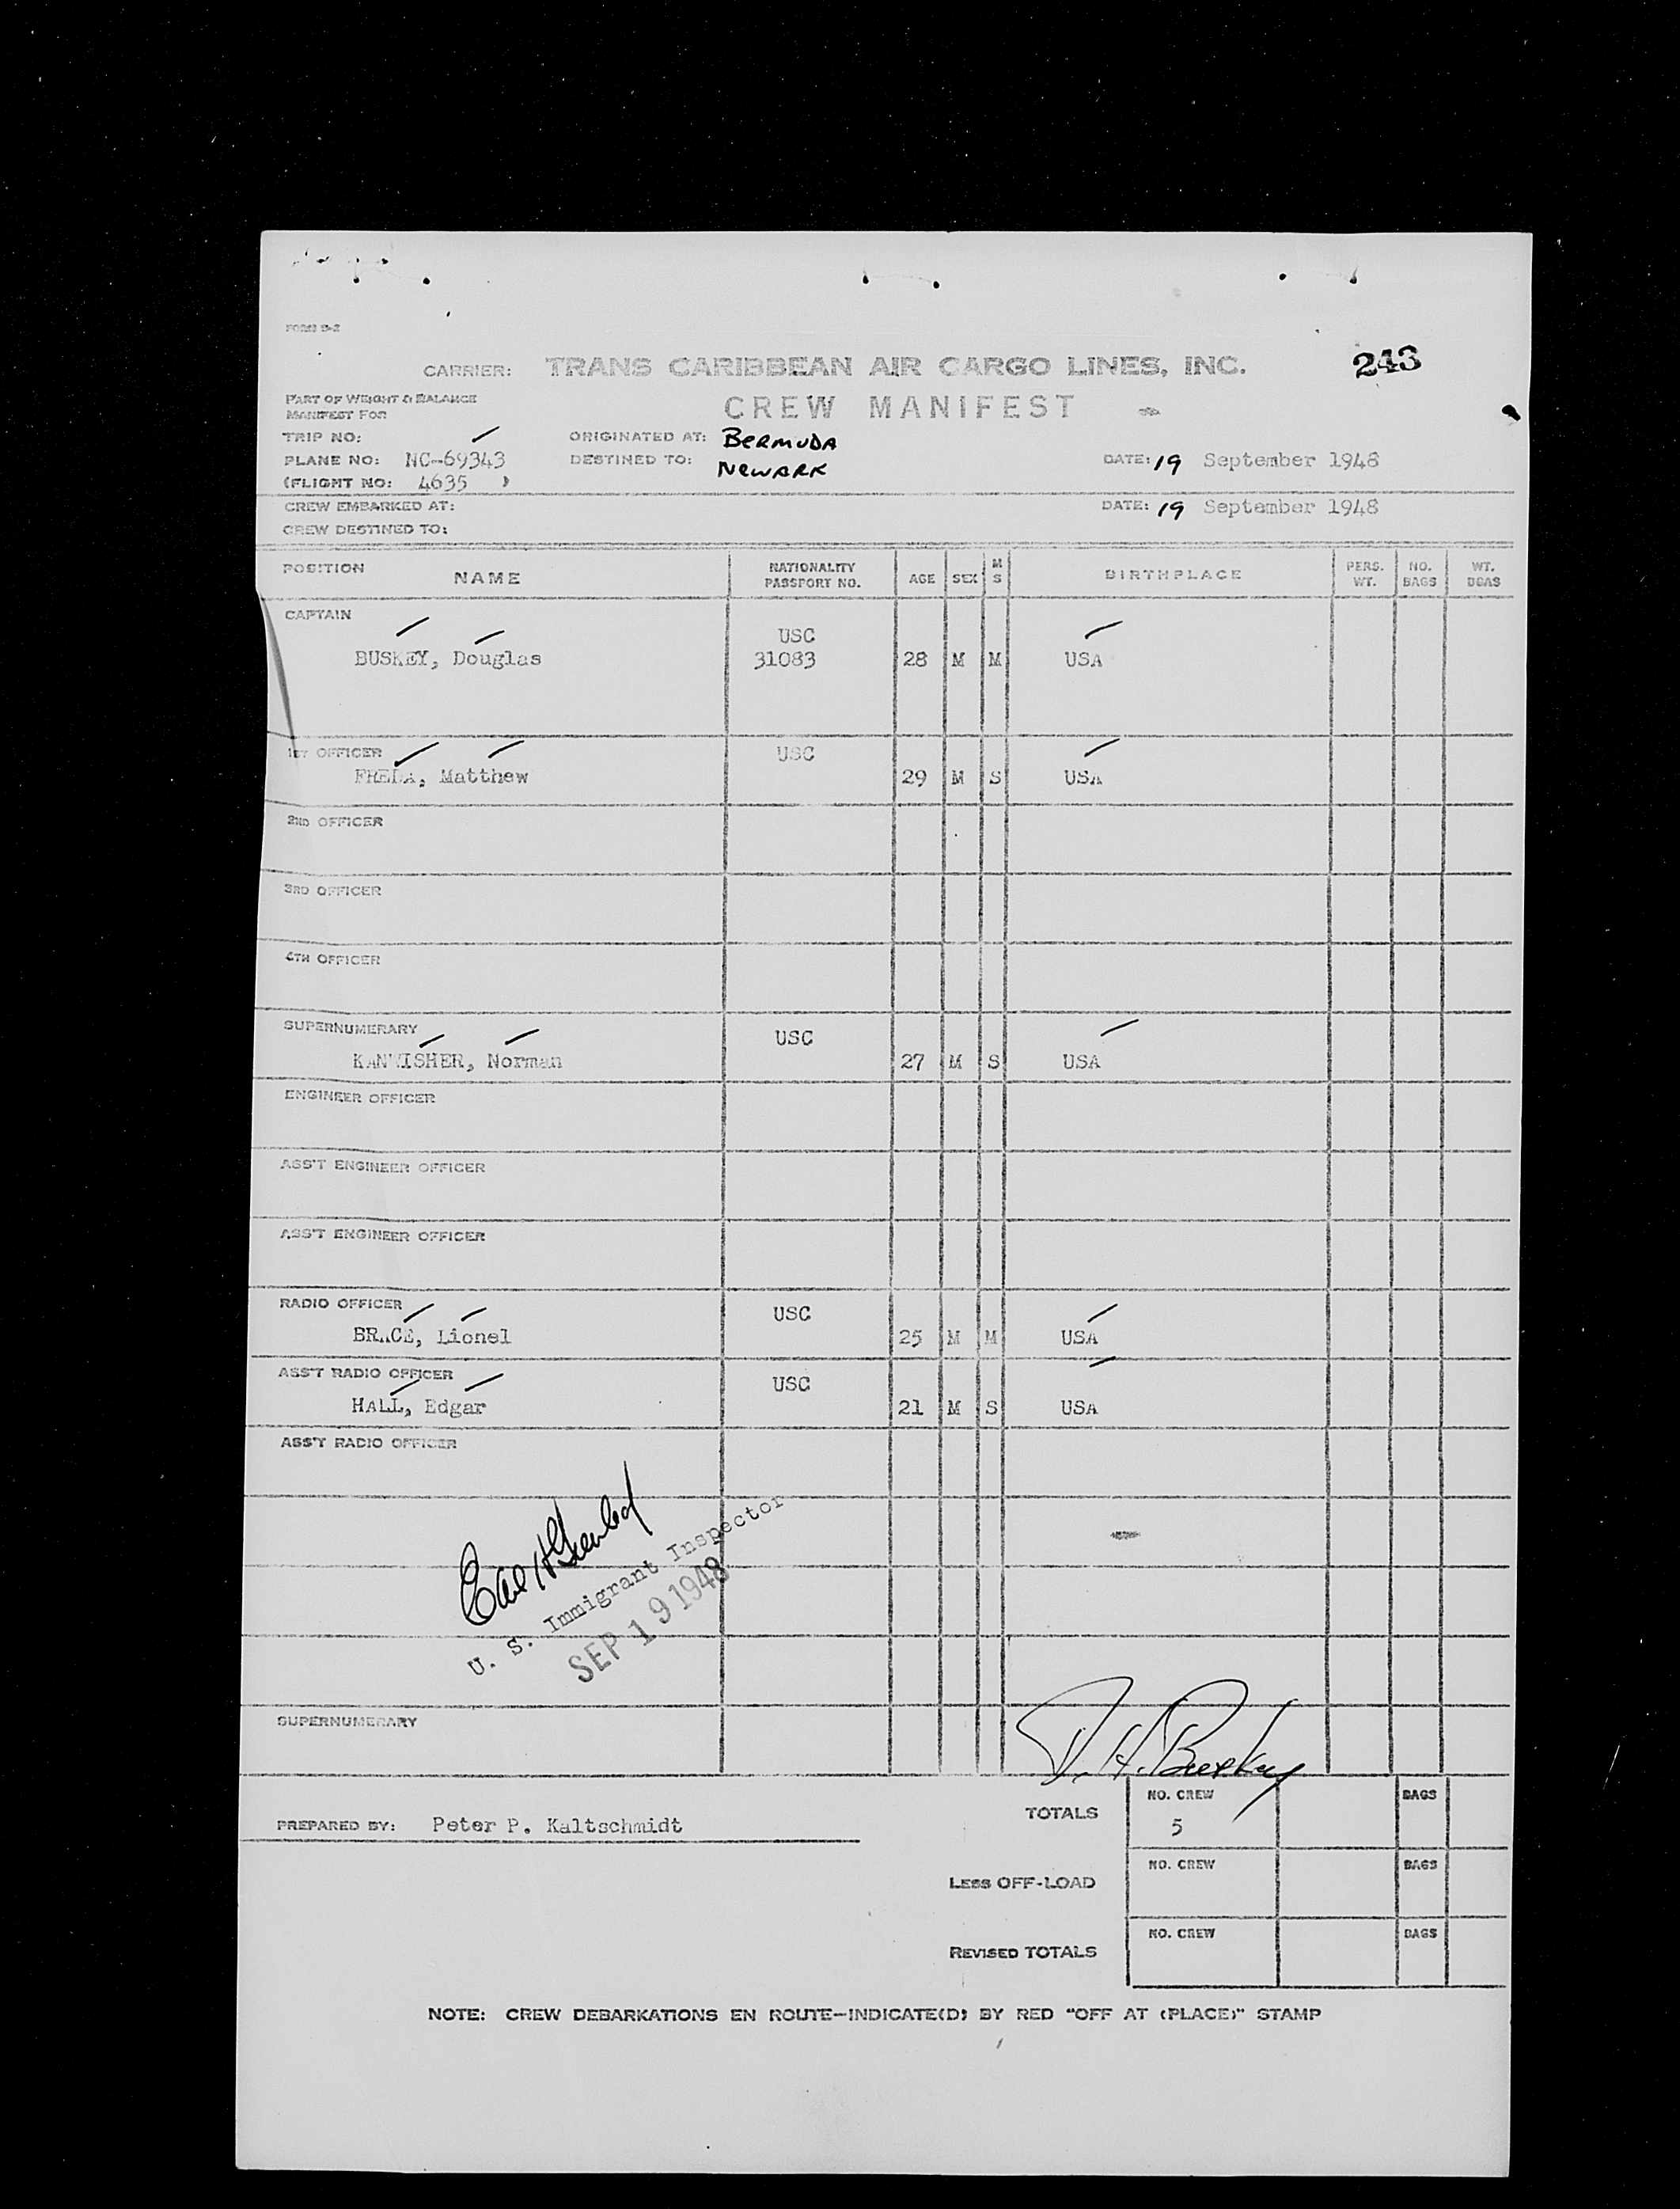 FORM D-2
243
CARRIER: TRANS CARIBBEAN AIR CARGO LINES, INC.
PART OF WEIGHT & BALANCE
MANIFEST FOR
CREW MANIFEST
TRIP NO:
ORIGINATED AT: BERMUDA
PLANE NO: NC-69343
DESTINED TO: NEWARK
DATE: 19 September 1948
(FLIGHT NO: 4635 )
CREW EMBARKED AT:
DATE: 19 September 1948
CREW DESTINED TO:
POSITION NAME NATIONALITY PASSPORT NO. AGE SEX M S BIRTHPLACE PERS. WT. NO. BAGS WT. BGAS
CAPTAIN
USC
BUSKEY, Douglas 31083 28 M M USA
1ST OFFICER USC
FREDA, Matthew 29 M S USA
2ND OFFICER
3RD OFFICER
4TH OFFICER
SUPERNUMERARY USC
KANWISHER, Norman 27 M S USA
ENGINEER OFFICER
ASS'T ENGINEER OFFICER
ASS'T ENGINEER OFFICER
RADIO OFFICER USC
BRACE, Lionel 25 M M USA
ASS'T RADIO OFFICER USC
HALL, Edgar 21 M S USA
ASS'T RADIO OFFICER
U. S. Immigrant Inspector
SEP 19 1948
SUPERNUMERARY
D. H. Buskey
NO. CREW BAGS
TOTALS 5
PREPARED BY: Peter P. Kaltschmidt
NO. CREW BAGS
LESS OFF-LOAD
NO. CREW BAGS
REVISED TOTALS
NOTE: CREW DEBARKATIONS EN ROUTE—INDICATE(D) BY RED "OFF AT (PLACE)" STAMP